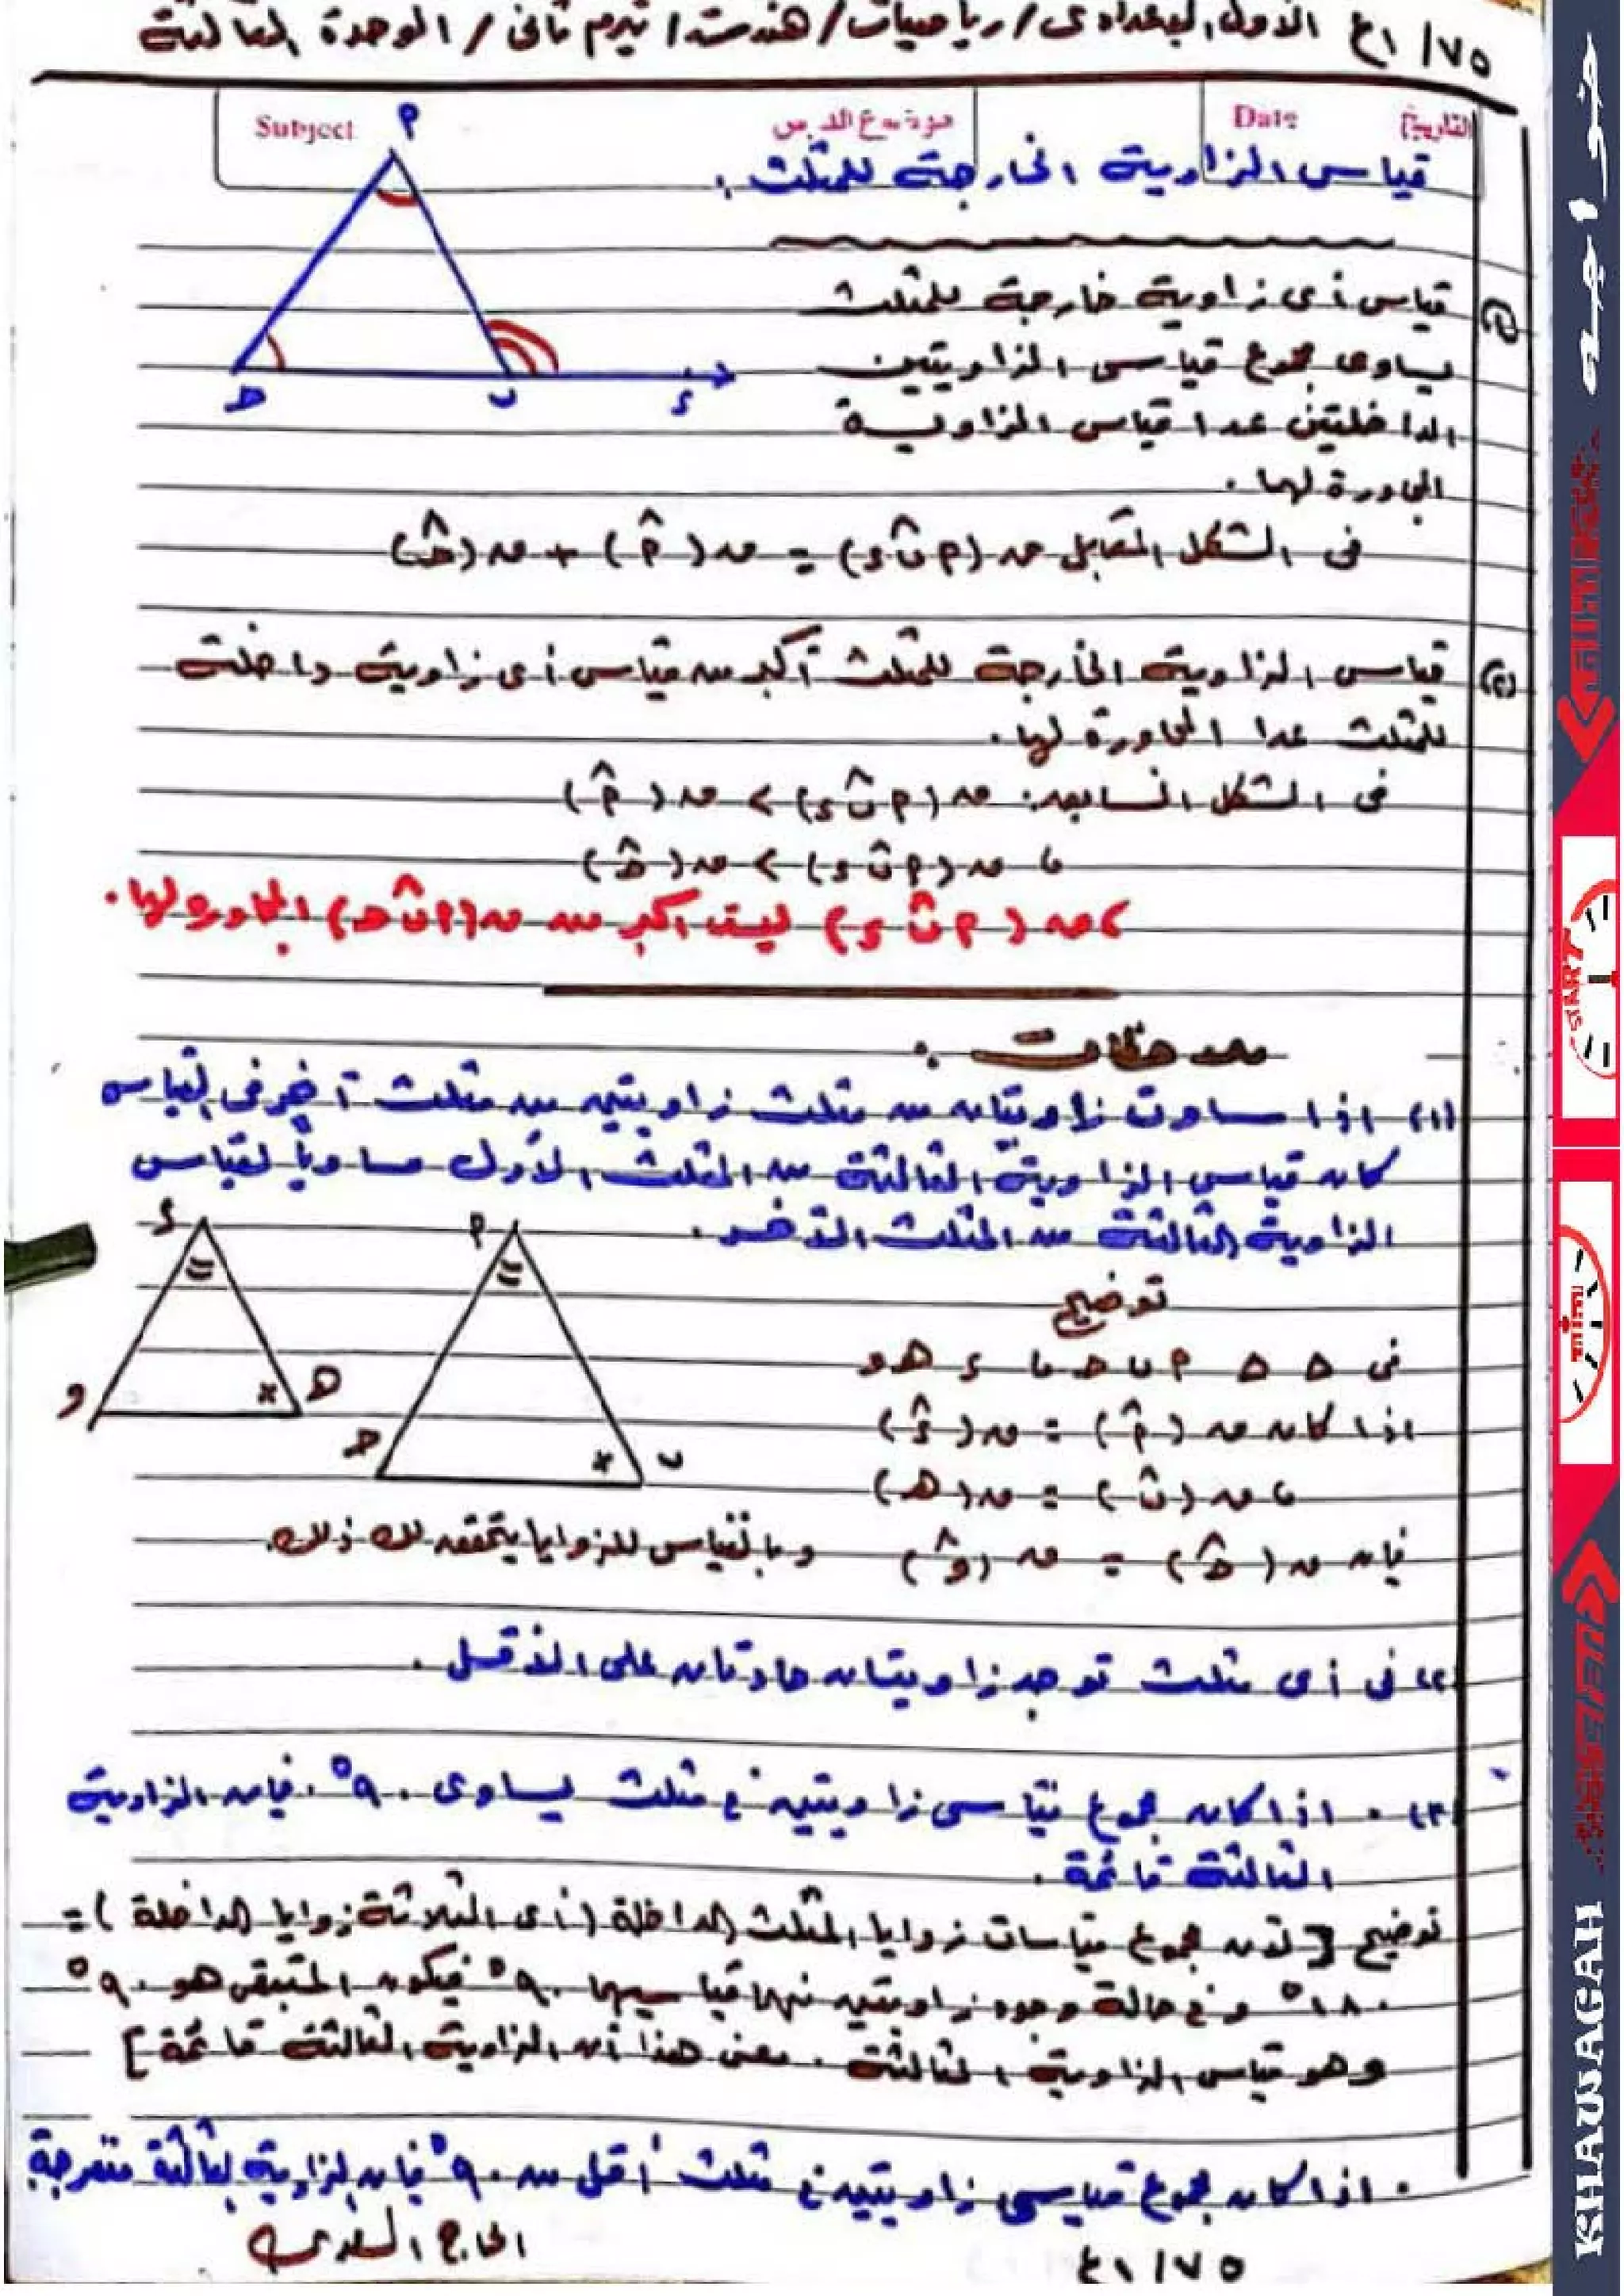 ٧٥ / ١ع الأول الإعدادى / رياضيات / هندسة / تيرم ثانى / الوحدة الثالثة
Subject موضوع الدرس Date التاريخ
قياس الزاوية الخارجة للمثلث :
م
ح ب ء
(١) قياس أى زاوية خارجة للمثلث
يساوى مجموع قياسى الزاويتين
الداخلتين عدا قياس الزاوية
المجاورة لها .
فى الشكل المقابل ق (م ب̂ ء) = ق (م̂) + ق (ح̂)
(٢) قياس الزاوية الخارجة للمثلث أكبر من قياس أى زاوية داخلة
للمثلث عدا المجاورة لها .
فى الشكل السابق : ق (م ب̂ ء) > ق (م̂)
، ق (م ب̂ ء) > ق (ح̂)
، ق (م ب̂ ء) ليست أكبر من ق (م ب̂ ح) المجاورة لها .
ملاحظات :
(١) إذا ساوت زاويتان من مثلث زاويتين من مثلث آخر فى القياس
كان قياس الزاوية الثالثة من المثلث الأول مساوياً لقياس
الزاوية الثالثة من المثلث الآخر .
توضيح
م ء
فى △ △ م ب ح ، ء هـ و
و هـ
إذا كان ق (م̂) = ق (ء̂)
ح ب
، ق (ب̂) = ق (هـ)
فإن ق (ح̂) = ق (و̂) وبالقياس للزوايا يتحقق لك ذلك .
(٢) فى أى مثلث توجد زاويتان حادتان على الأقل .
(٣) . إذا كان مجموع قياسى زاويتين فى مثلث يساوى ٩٠° فإن الزاوية
الثالثة قائمة .
توضيح [ لأن مجموع قياسات زوايا المثلث الداخلة (أى الثلاثة زوايا الداخلة) =
١٨٠° وفى حالة وجود زاويتين منها قياسيهما ٩٠° فيكون المتبقى هو ٩٠°
وهو قياس الزاوية الثالثة . معنى هذا أن الزاوية الثالثة قائمة ]
. إذا كان مجموع قياسى زاويتين فى مثلث أقل من ٩٠° فإن الزاوية الثالثة منفرجة
٧٥ / ١ع الحاج السلامى
خواجه
START
time
KHAWAGAH